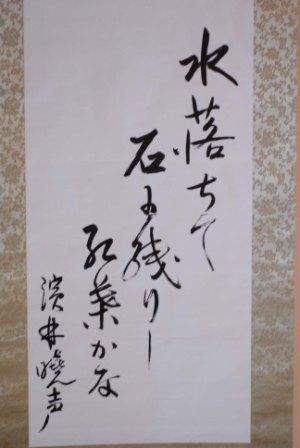 水落ちて
石に残りし
紅葉かな
濱井曉声